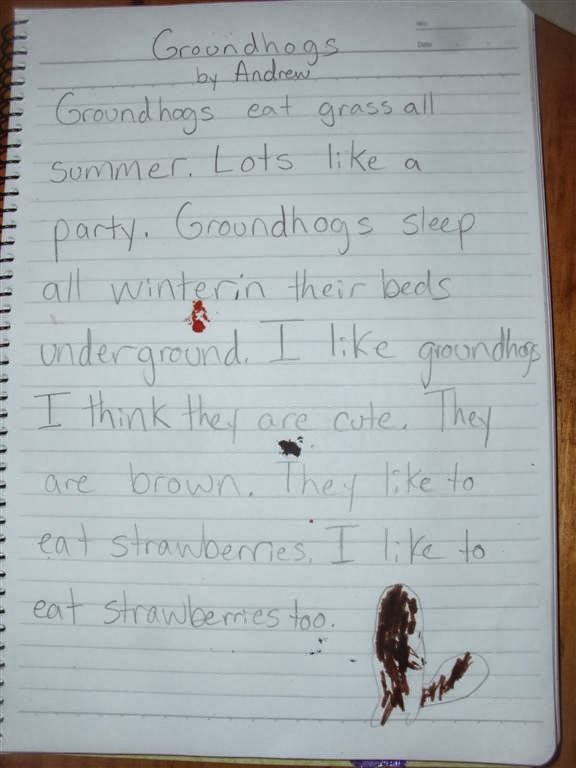 No.
Date
Groundhogs
by Andrew
Groundhogs eat grass all
summer. Lots like a
party. Groundhogs sleep
all winter in their beds
underground. I like groundhogs
I think they are cute. They
are brown. They like to
eat strawberries. I like to
eat strawberries too.